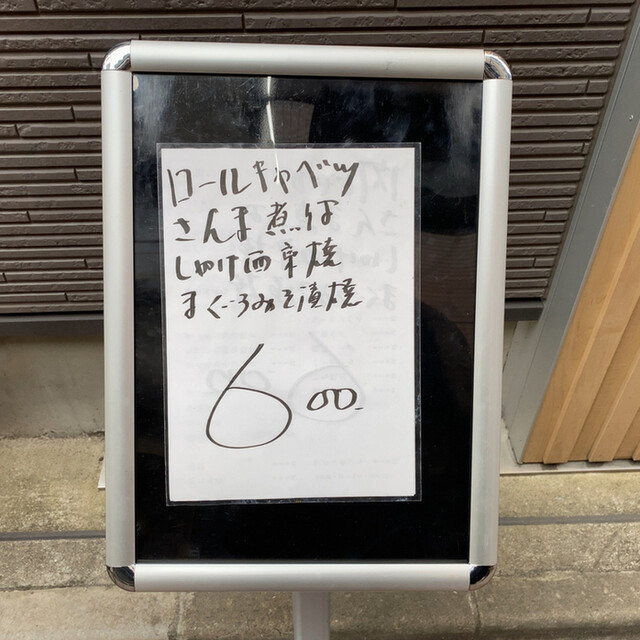 ロールキャベツ
さんま煮付
しゃけ西京焼
まぐろみそ漬焼
600.